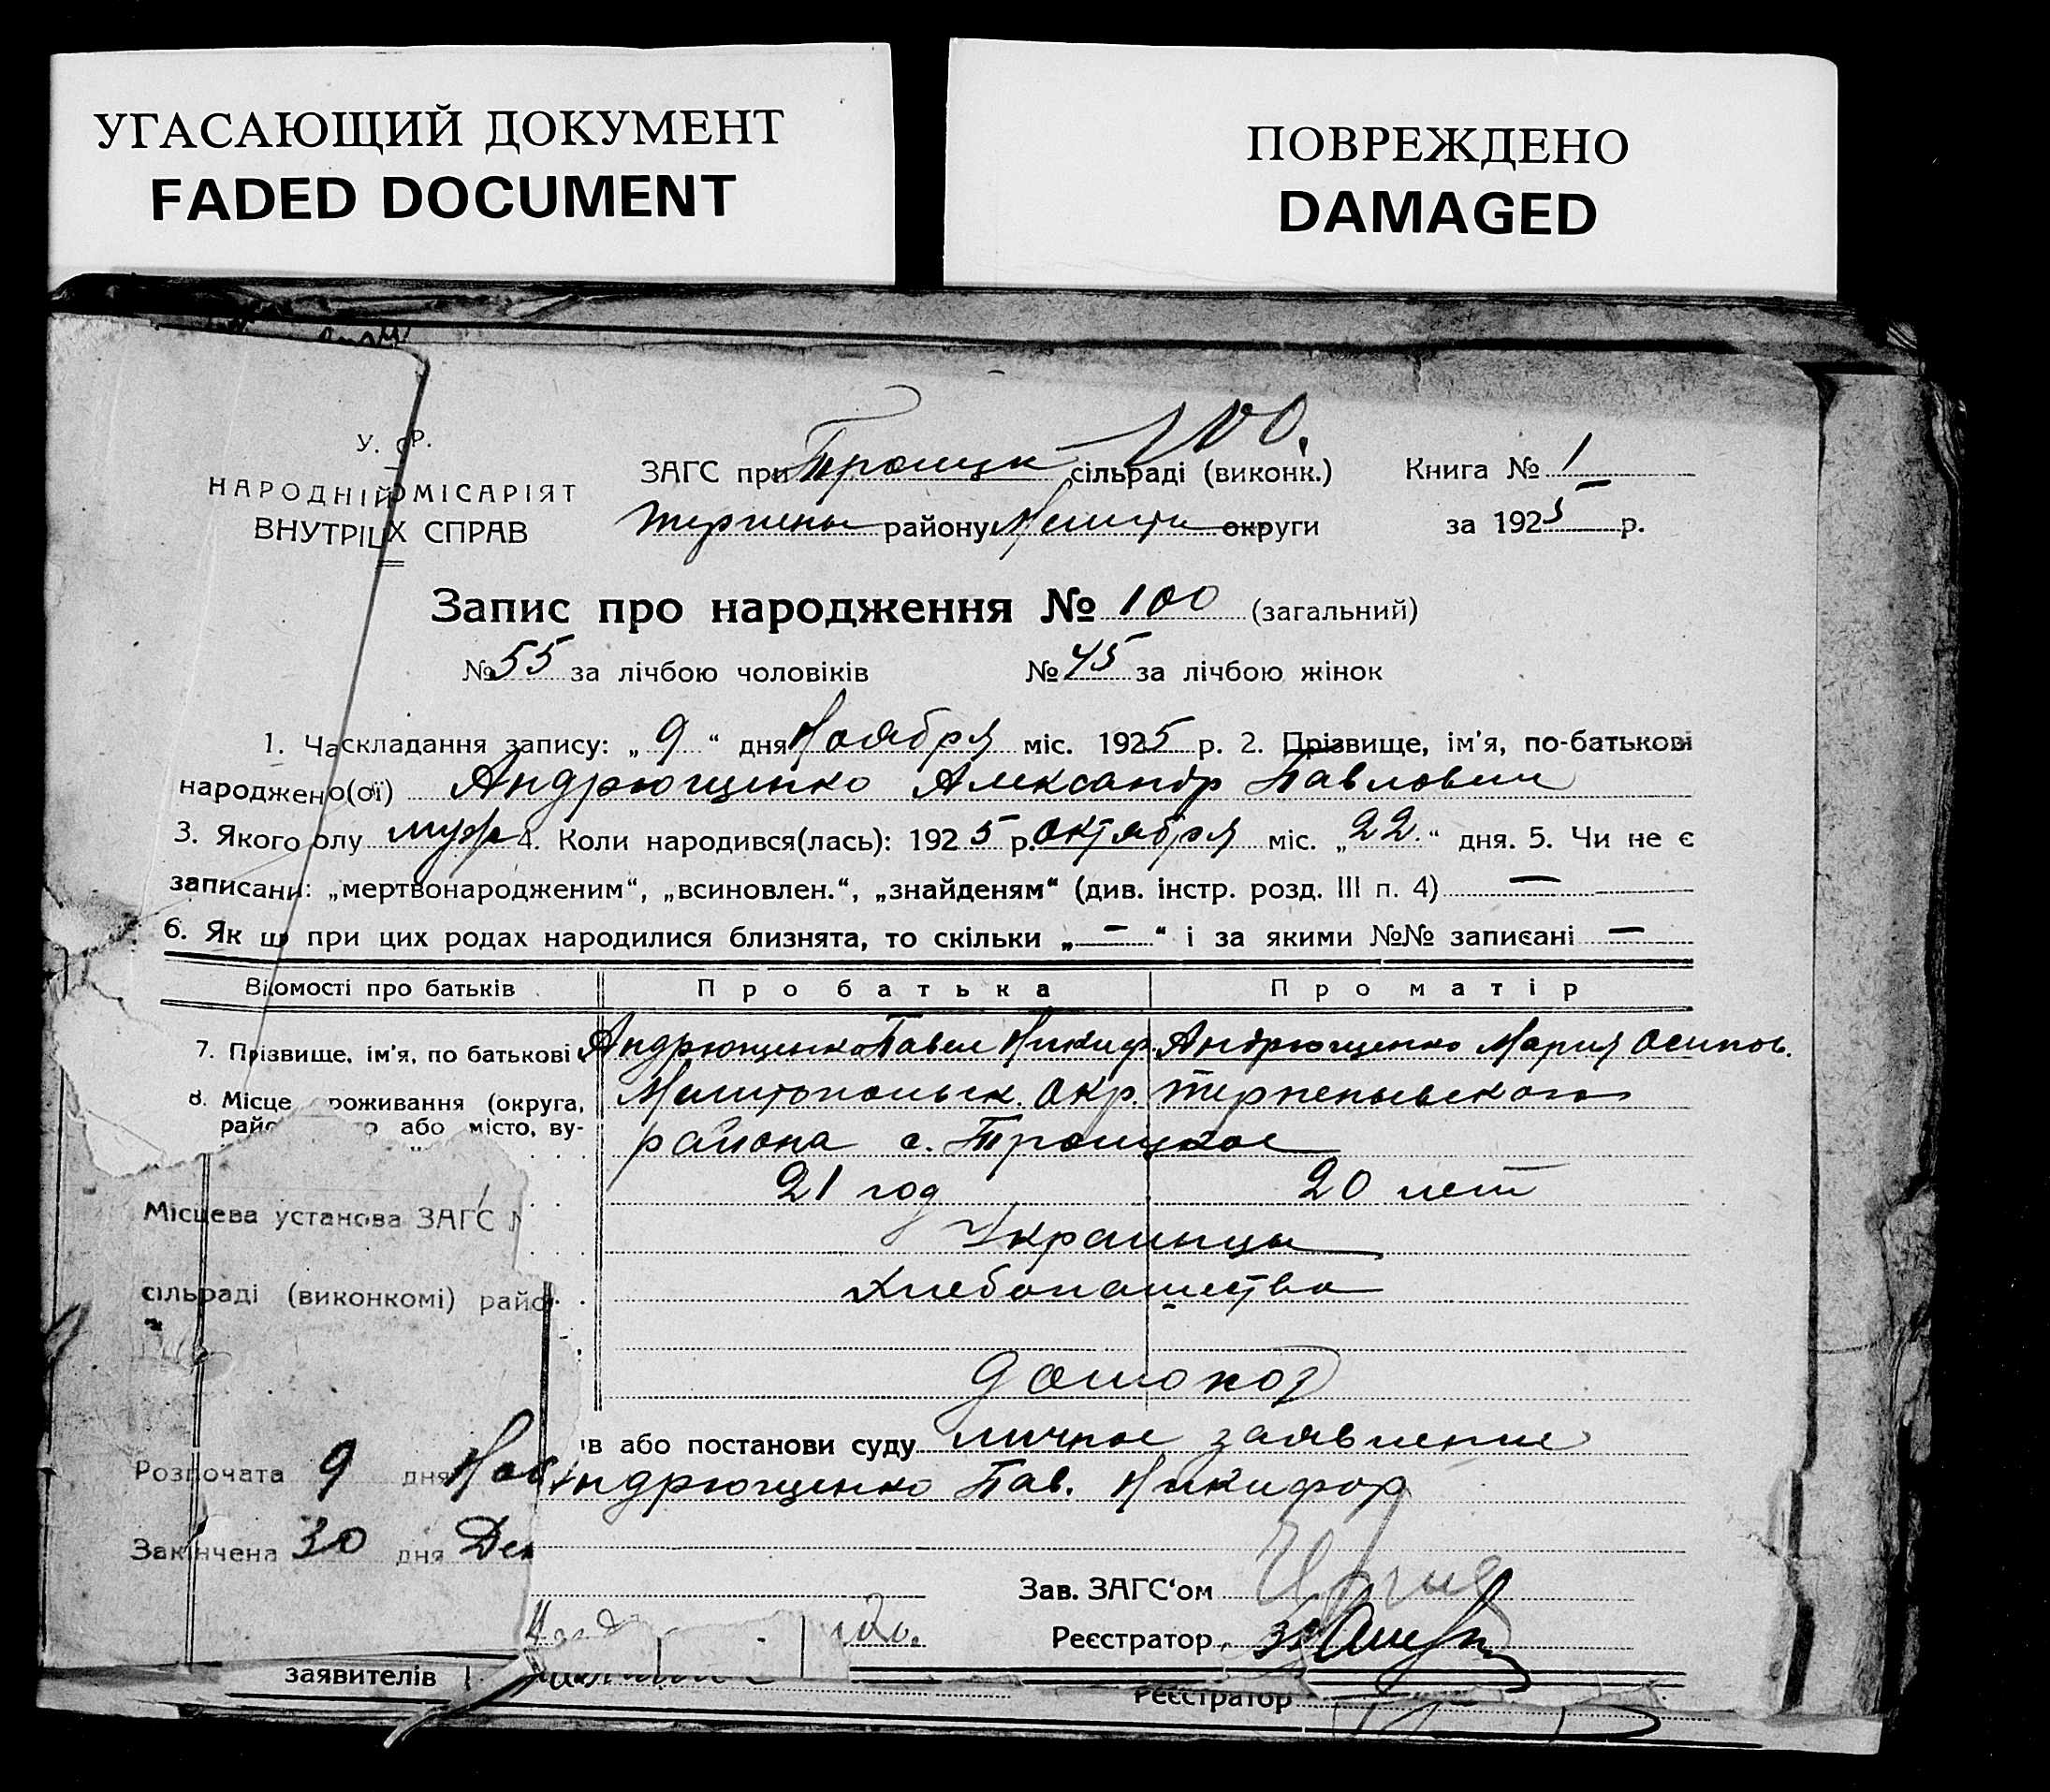 УГАСАЮЩИЙ ДОКУМЕНТ
FADED DOCUMENT
ПОВРЕЖДЕНО
DAMAGED
100.
У. Р.
НАРОДНІЙ ОМІСАРІЯТ
ВНУТРІШ Х СПРАВ
ЗАГС при Троицк сільраді (виконк.) Книга № 1
Терпень району Мелит округи за 1925 р.
Запис про народження № 100 (загальний)
№ 55 за лічбою чоловіків № 45 за лічбою жінок
1. Час складання запису: „ 9 “ дня Ноября міс. 1925 р. 2. Прізвище, ім'я, по-батькові
народжено(ої) Андрющенко Александр Павлович
3. Якого полу муж 4. Коли народився(лась): 1925 р. Октября міс. „ 22 “ дня. 5. Чи не є
записани: „мертвонародженим“, „всиновлен.“, „знайденям“ (див. інстр. розд. III п. 4) —
6. Як що при цих родах народилися близнята, то скільки „ — “ і за якими №№ записані —
Відомості про батьків Про батька Про матір
7. Прізвище, ім'я, по батькові Андрющенко Павел Никиф. Андрющенко Мария Осипов.
8. Місце проживання (округа, Мелитопольск. Окр. Терпеньевского
або місто, ву- района с. Троицкое
21 год 20 лет
Місцева установа ЗАГС
Украинцы
сільраді (виконкомі) райо
Хлебопашество
ів або постанови суду личное заявление
Розпочата 9 дня Ноя
Андрющенко Пав. Никифор
Закінчена 30 дня Дек
Зав. ЗАГС'ом
Реєстратор
заявителів
Реєстратор